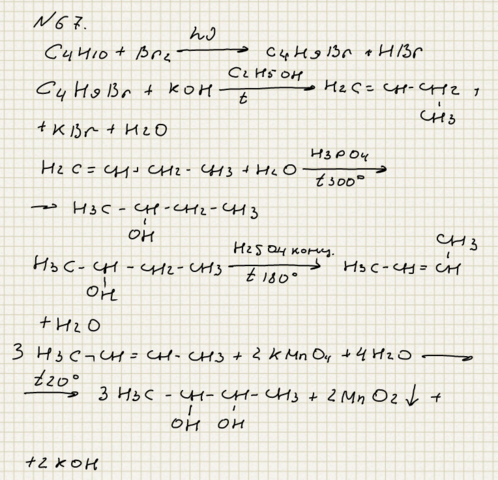 N67.
C4H10 + Br2 —hν→ C4H9Br + HBr
C4H9Br + KOH —C2H5OH, t→ H2C = CH - CH2 - CH3 +
+ KBr + H2O
H2C = CH - CH2 - CH3 + H2O —H3PO4, t 300°→
→ H3C - CH(OH) - CH2 - CH3
H3C - CH(OH) - CH2 - CH3 —H2SO4 конц., t 180°→ H3C - CH = CH - CH3
+ H2O
3 H3C - CH = CH - CH3 + 2 KMnO4 + 4H2O →
—t 20°→ 3 H3C - CH(OH) - CH(OH) - CH3 + 2 MnO2 ↓ +
+ 2 KOH